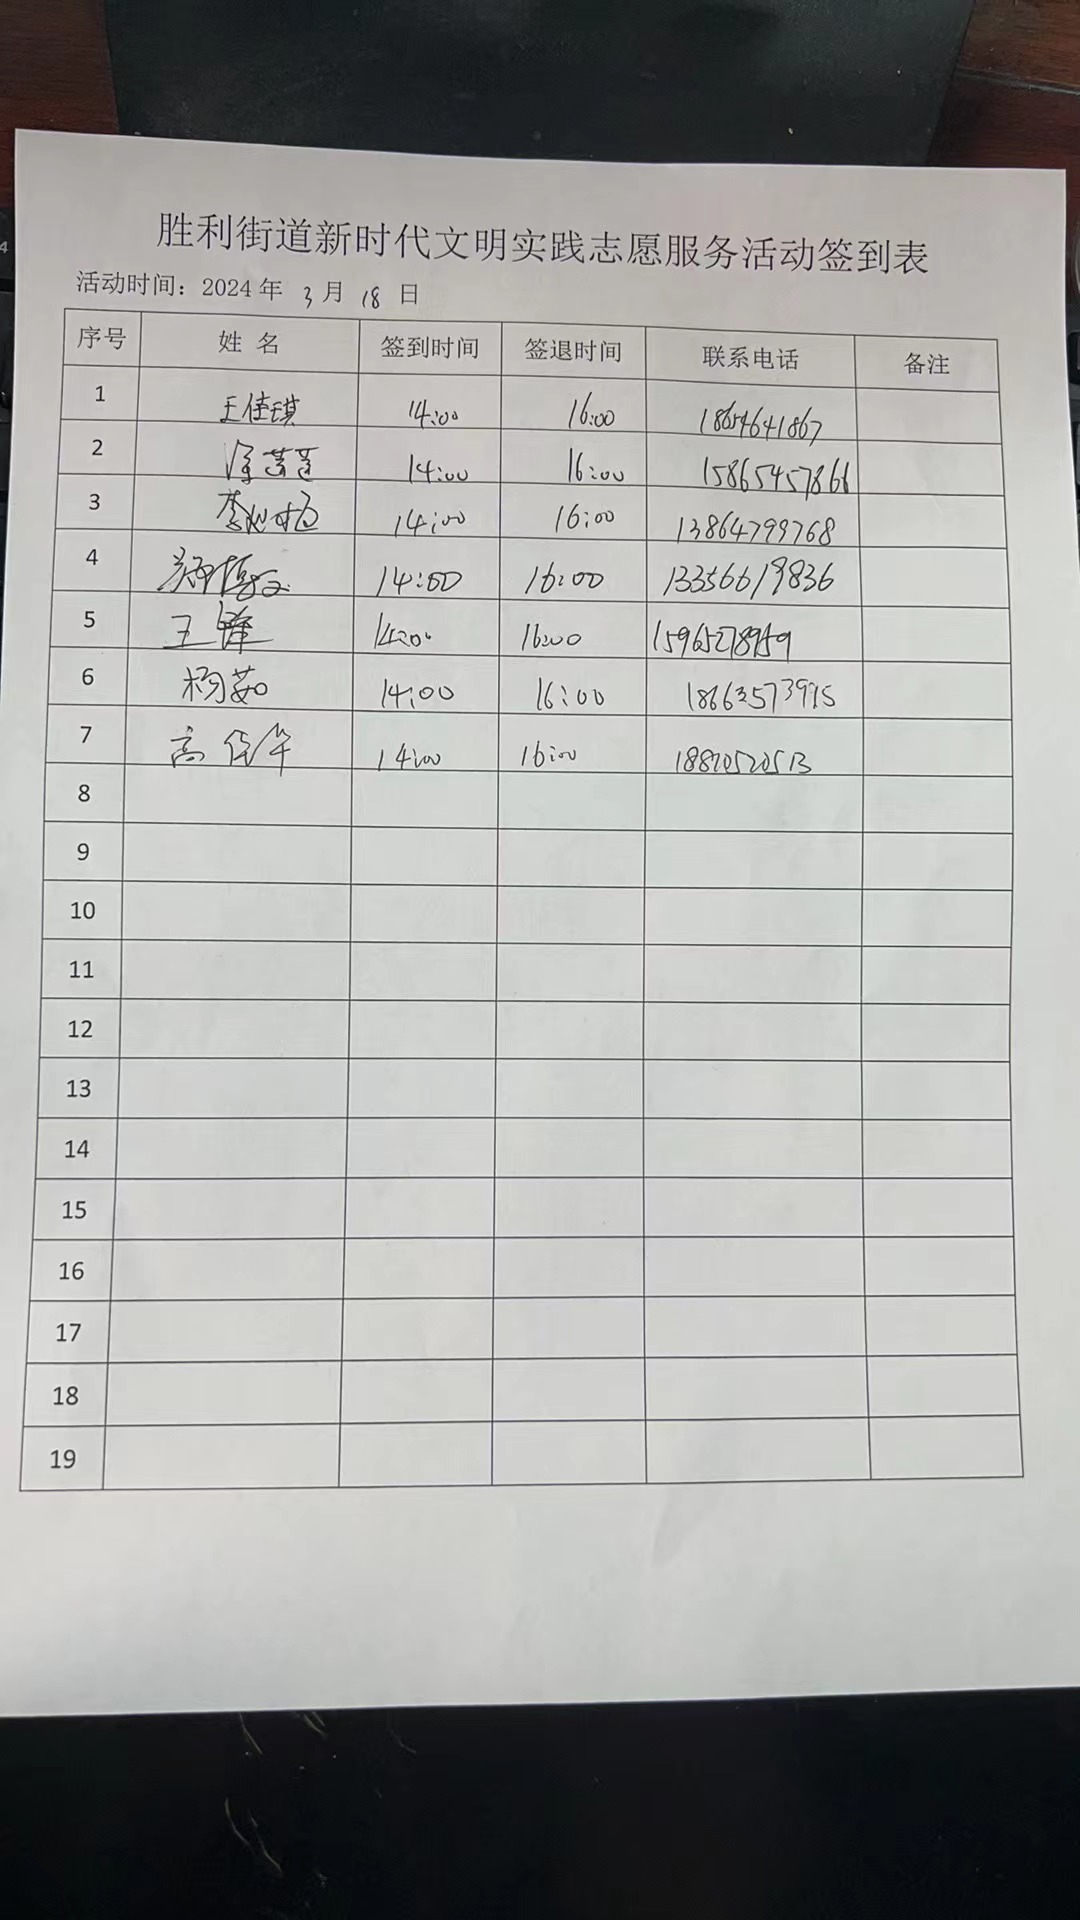 胜利街道新时代文明实践志愿服务活动签到表
活动时间：2024年 3月 18 日
序号 姓 名 签到时间 签退时间 联系电话 备注
1 王佳琪 14:00 16:00 18654641867
2 14:00 16:00 15865457866
3 李 14:00 16:00 13864799768
4 郑 14:00 16:00 13356619836
5 王锋 14:00 16:00 15965278959
6 杨茹 14:00 16:00 18663573995
7 高 14:00 16:00
8
9
10
11
12
13
14
15
16
17
18
19